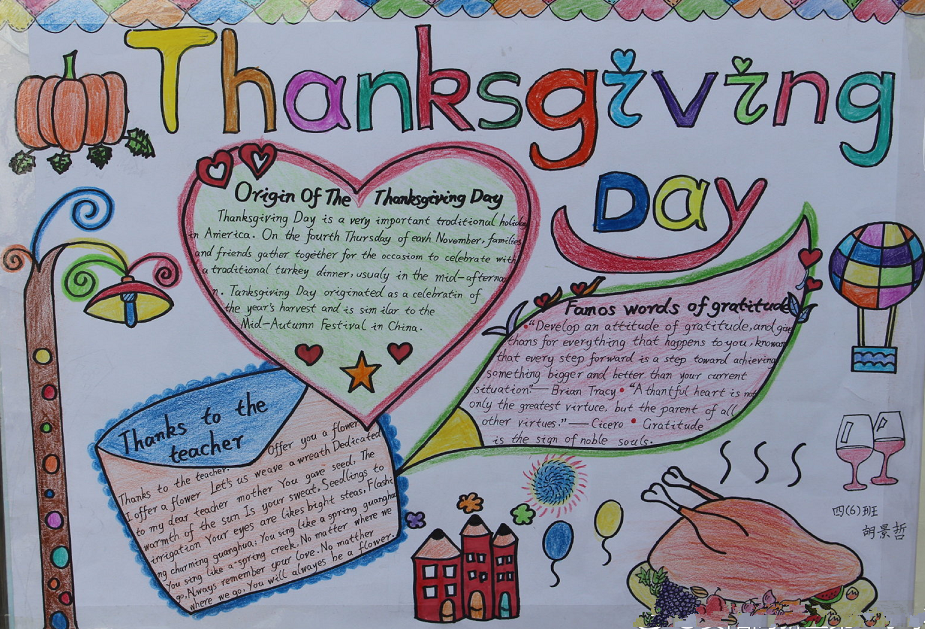 Thanksgiving
Day
Origin Of The Thanksgiving Day
Thanksgiving Day is a very important traditional holiday
in America. On the fourth Thursday of eavh November, families
and friends gather together for the occasion to celebrate with
a traditional turkey dinner, usualy in the mid-afternoo
n. Tanksgiving Day originated as a celebratin of
the year's harvest and is similar to the
Mid-Autumn Festival in China.
Famos words of gratitude
"Develop an attitude of gratitude, and give
thans for everything that happens to you, knowin
that every step forward is a step toward achieving
something bigger and better than your current
situation." — Brian Tracy • "A thantful heart is not
only the greatest virtuce, but the parent of all
other virtues." — Cicero • Gratitude
is the sign of noble souls.
Thanks to the
teacher
Offer you a flower
Thanks to the teacher.
I offer a flower Let's us weave a wreath Dedicated
to my dear teacher mother You gave seed, The
warmth of the sun Is your sweat, Seedlings to
irrigation Your eyes are likes bight steas, Flashi
ng charming guanghua. You sing like a spring, guanghua
You sing like a-spring creek. No matter where we
go, Always remember your love. No matther
where we go, You will always be a flower.
四(6)班
胡景哲